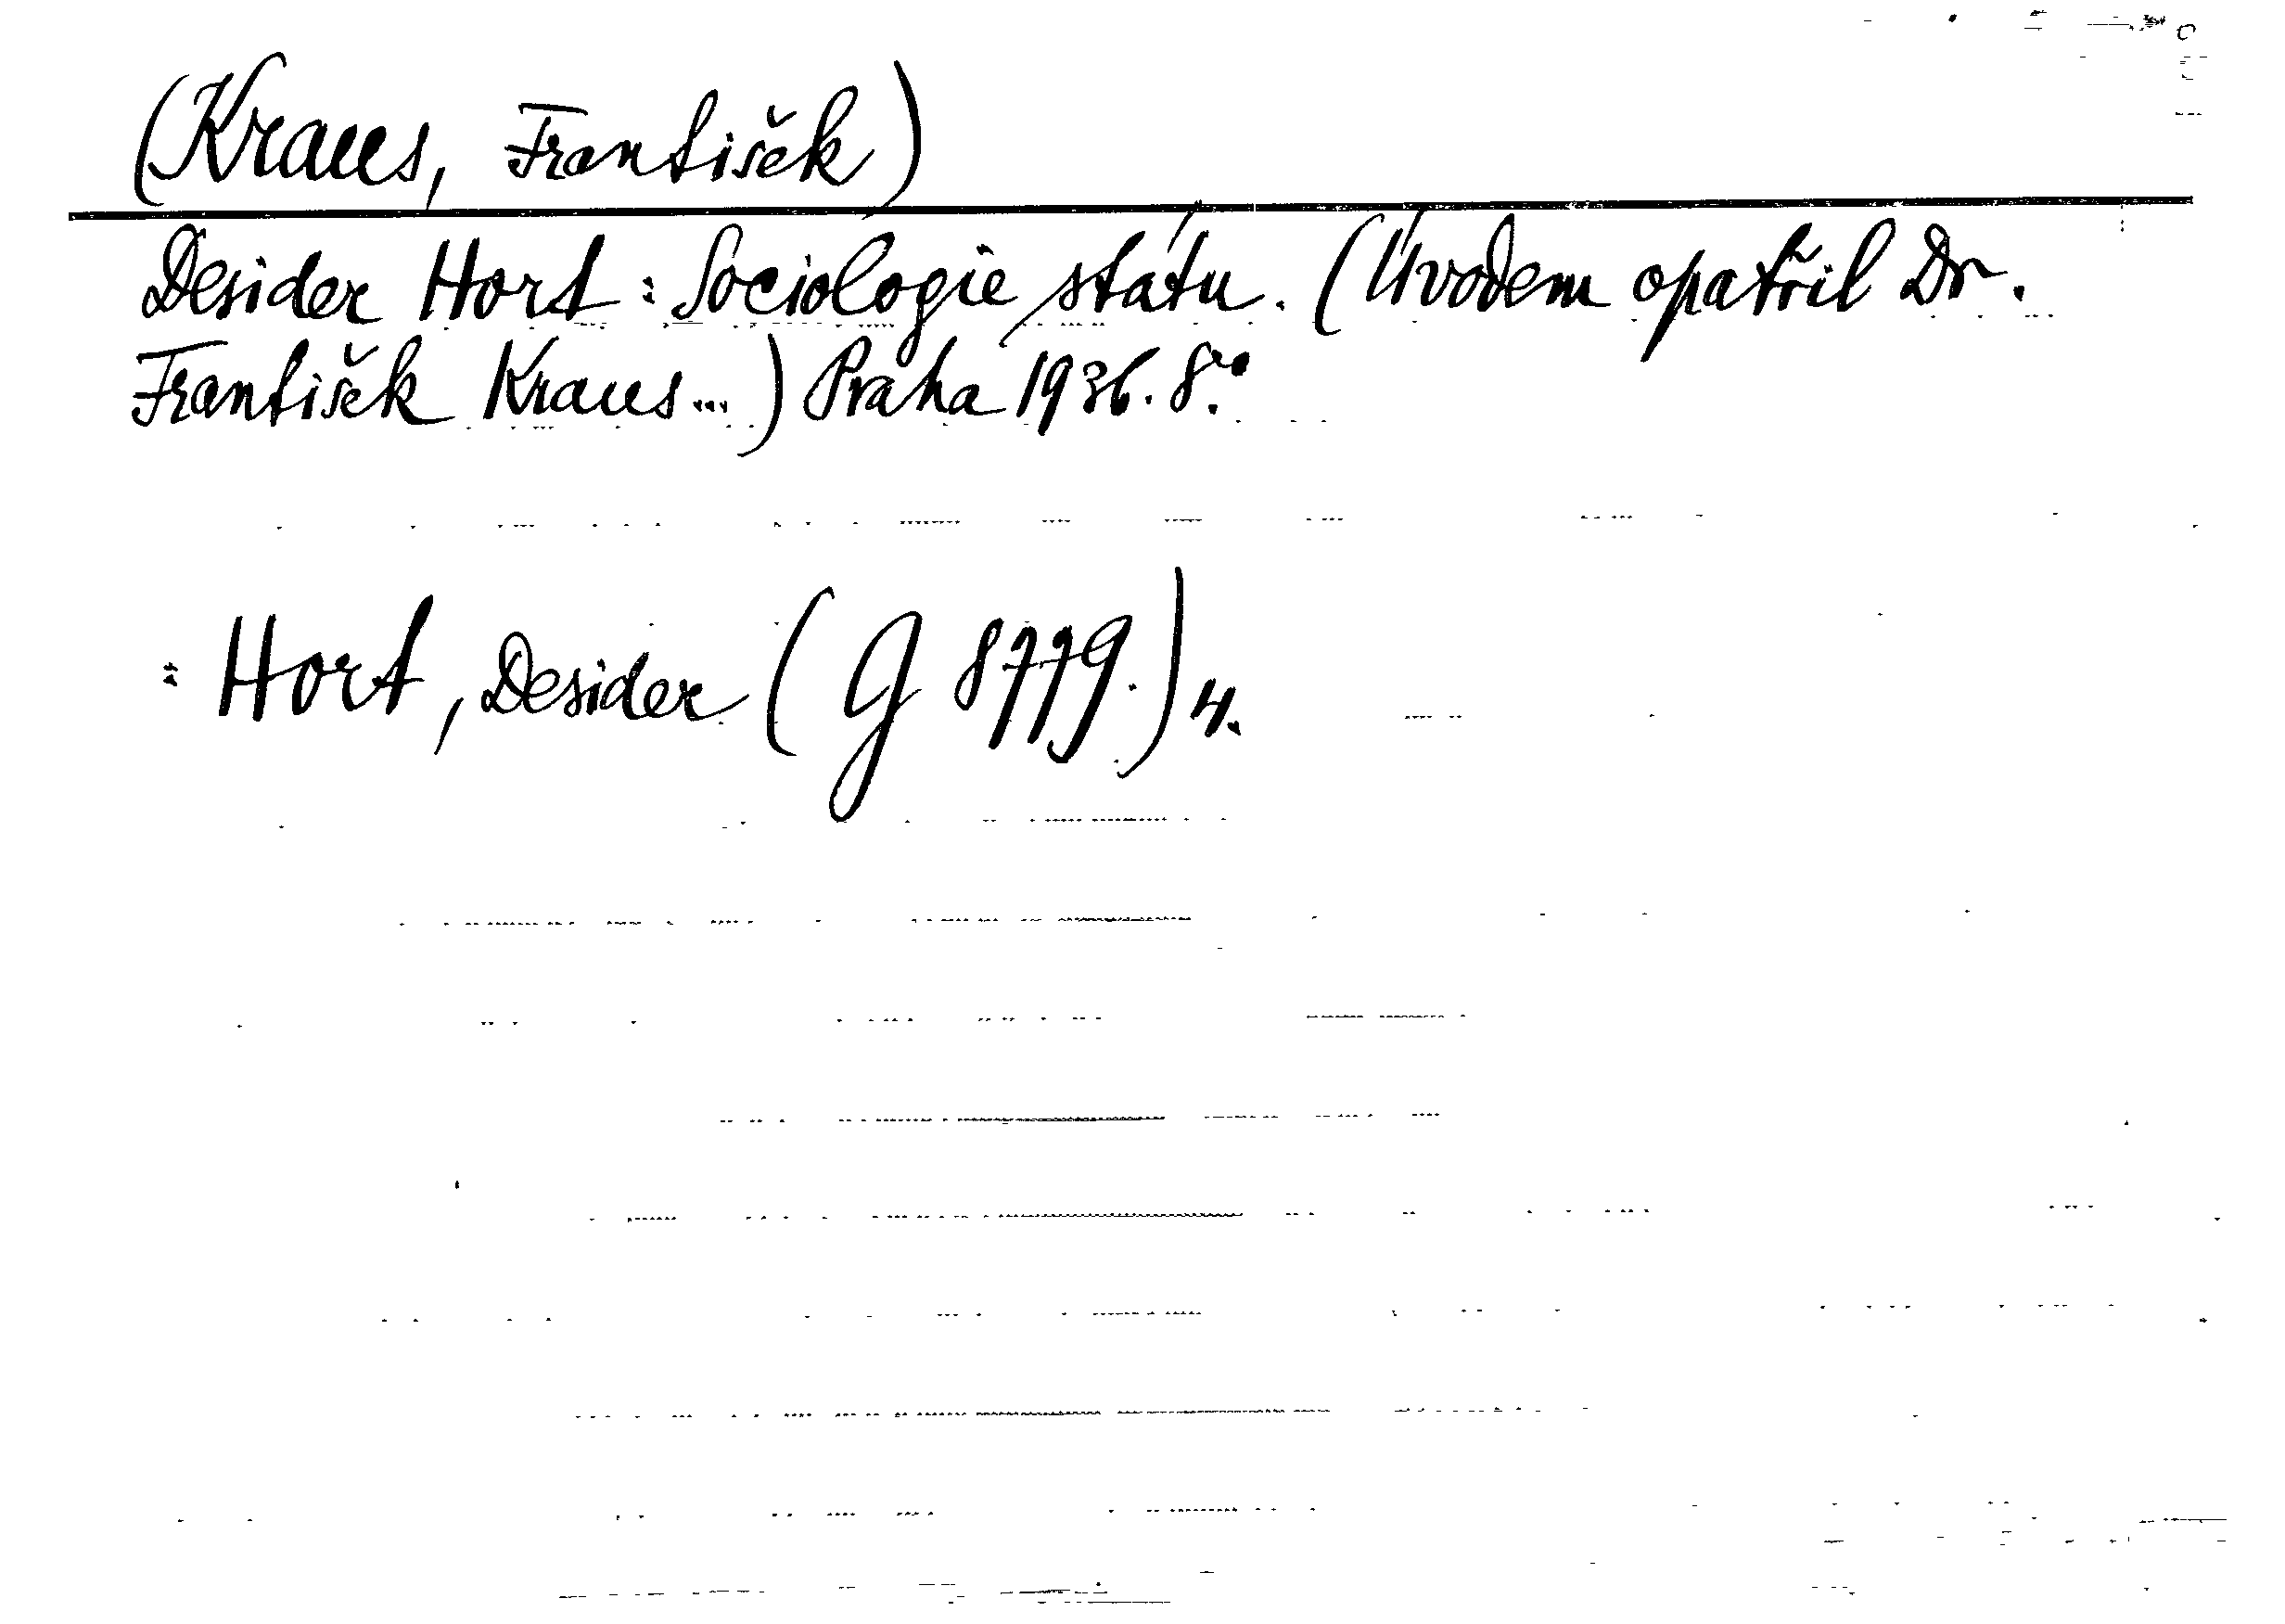 (Kraus, František)
Desider Hort: Sociologie státu. (Úvodem opatřil Dr.
František Kraus...) Praha 1936. 8°.
: Hort, Desider (G 8779.) 4.